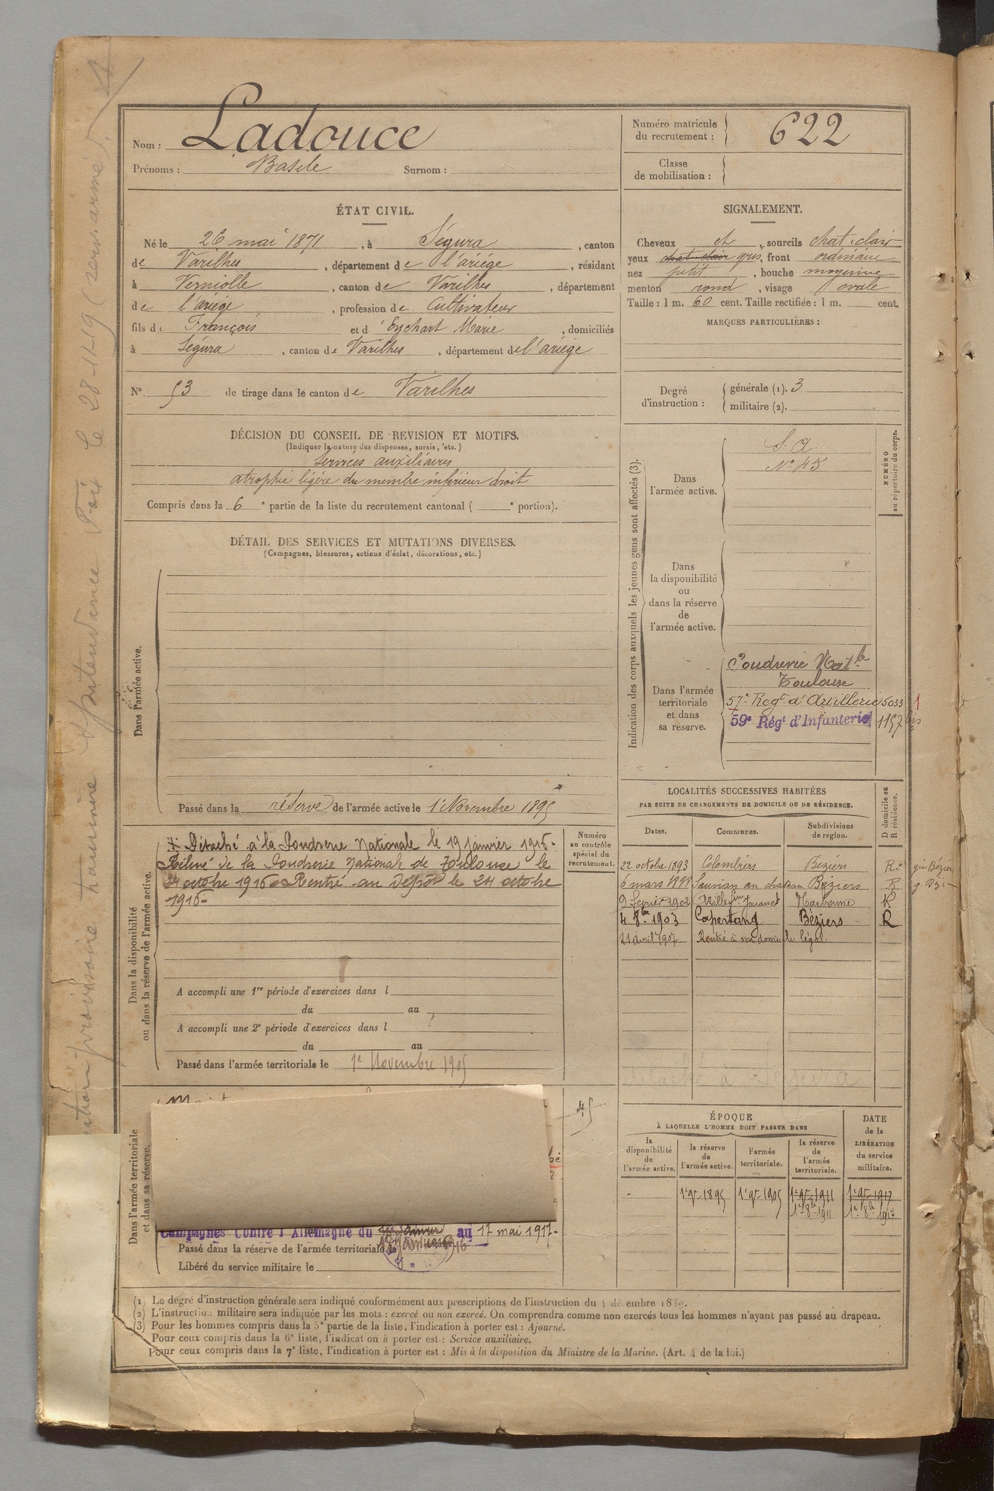 Nom : Ladouce
Prénoms : Basile Surnom :
Numéro matricule du recrutement : 622
Classe de mobilisation :
ÉTAT CIVIL.
Né le 26 mai 1871, à Ségura, canton
de Varilhes, département de l'ariége, résidant
à Verniolle, canton de Varilhes, département
de l'ariége, profession de Cultivateur
fils de François et d'Eychart Marie, domiciliés
à Ségura, canton de Varilhes, département de l'ariége
N° 53 de tirage dans le canton de Varilhes
SIGNALEMENT.
Cheveux et, sourcils chat. clair
yeux chat clair gris, front ordinaire
nez petit, bouche moyenne
menton rond, visage ovale
Taille : 1 m. 60 cent. Taille rectifiée : 1 m. cent.
MARQUES PARTICULIÈRES :
Degré d'instruction : générale (1). 3
militaire (2).
DÉCISION DU CONSEIL DE REVISION ET MOTIFS.
(Indiquer la nature des dispenses, sursis, etc.)
Services auxiliaires
atrophie légère du membre inférieur droit
Compris dans la 6e partie de la liste du recrutement cantonal ( e portion).
DÉTAIL DES SERVICES ET MUTATIONS DIVERSES.
(Campagnes, blessures, actions d'éclat, décorations, etc.)
Dans l'armée active.
Passé dans la réserve de l'armée active le 1er Novembre 1895
Indication des corps auxquels les jeunes gens sont affectés (3).
NUMÉRO au répertoire du corps.
Dans l'armée active.
S. A
N° 45
Dans la disponibilité ou dans la réserve de l'armée active.
Dans l'armée territoriale et dans sa réserve.
Poudrerie Natle
Toulouse
57e Regt d'Artillerie 15033
59e Régt d'Infanterie 1157 bis
Dans la disponibilité ou dans la réserve de l'armée active.
Détaché à la Poudrerie Nationale le 19 janvier 1916-
Relevé de la Poudrerie Nationale de Toulouse le
24 octobre 1916 Rentré au Dépôt le 24 octobre
1916-
Numéro au contrôle spécial du recrutement.
A accompli une 1re période d'exercices dans l
du au
A accompli une 2e période d'exercices dans l
du au
Passé dans l'armée territoriale le 1er Novembre 1905
LOCALITÉS SUCCESSIVES HABITÉES
PAR SUITE DE CHANGEMENTS DE DOMICILE OU DE RÉSIDENCE.
Dates. Communes. Subdivisions de region. D domicile ou R résidence.
22 octobre 1893 Colombiers Beziers R
6 mars 1899 Sauvian au chateau Béziers R
9 Février 1902 Narbonne R
4 8bre 1903 Capestang Béziers R
21 avril 1907 Rentré à son domicile légal.
ÉPOQUE
À LAQUELLE L'HOMME DOIT PASSER DANS
la disponibilité de l'armée active. la réserve de l'armée active. l'armée territoriale. la réserve de l'armée territoriale.
DATE de la LIBÉRATION du service militaire.
1er 9bre 1895 1er 9bre 1905 1er 9bre 1911 1er 9bre 1917
1er 8bre 1911 1er 8bre 1917
Dans l'armée territoriale et dans sa réserve.
45
Campagnes contre l'Allemagne du au 17 mai 1917-
Passé dans la réserve de l'armée territoriale le
Libéré du service militaire le
(1) Le dégré d'instruction générale sera indiqué conformément aux prescriptions de l'instruction du 4 décembre 1889.
(2) L'instruction militaire sera indiquée par les mots : exercé ou non exercé. On comprendra comme non exercés tous les hommes n'ayant pas passé au drapeau.
(3) Pour les hommes compris dans la 5e partie de la liste, l'indication à porter est : Ajourné.
Pour ceux compris dans la 6e liste, l'indication à porter est : Service auxiliaire.
Pour ceux compris dans la 7e liste, l'indication à porter est : Mis à la disposition du Ministre de la Marine. (Art. 4 de la loi.)
provisoire Intendance Foix le 28-11-19 (sans arme).